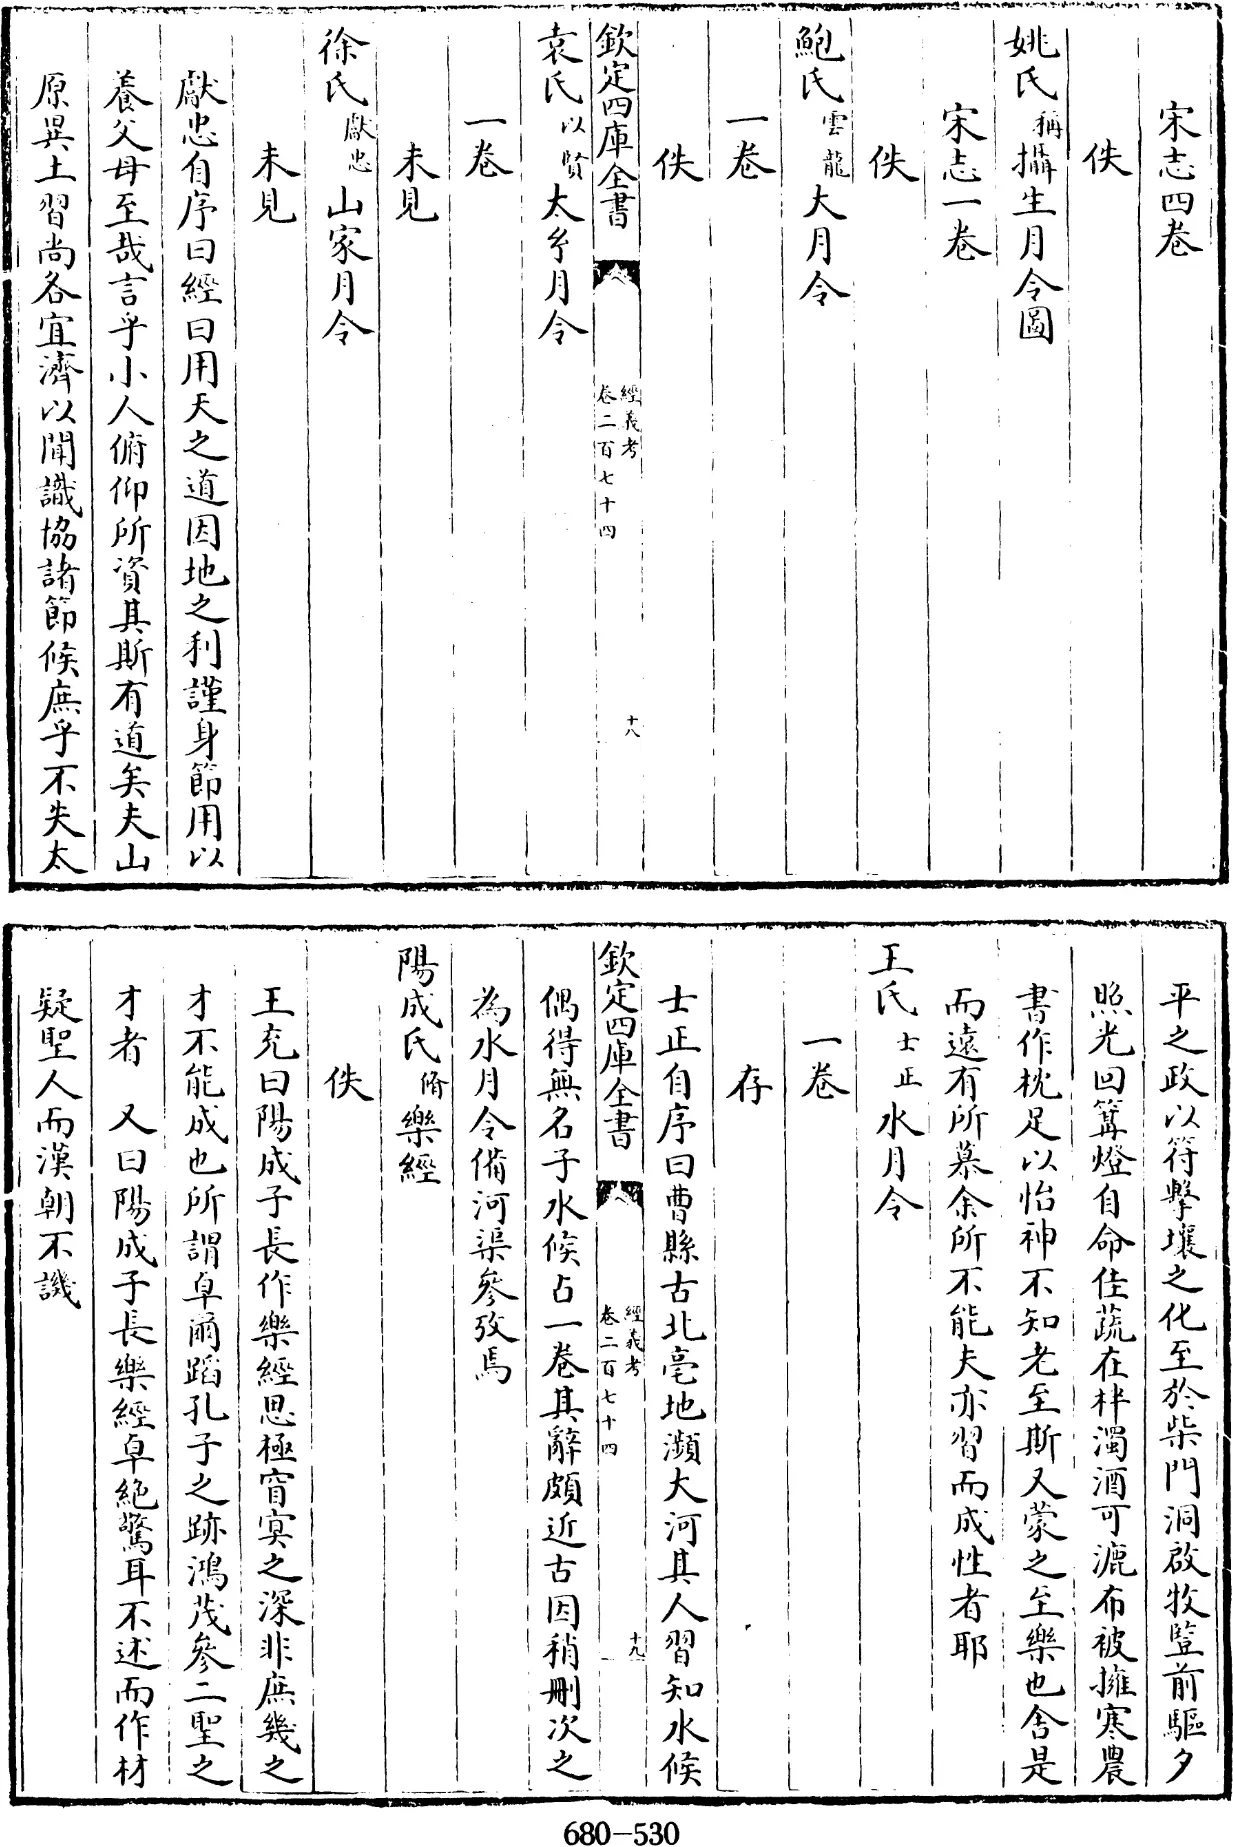 宋志四卷
佚
姚氏稱攝生月令圖
宋志一卷
佚
鮑氏雲龍大月令
一卷
佚
欽定四庫全書
經義考
卷二百七十四
十八
袁氏以賢太乡月令
一卷
未見
徐氏獻忠山家月令
未見
獻忠自序曰經曰用天之道因地之利謹身節用以
養父母至哉言乎小人俯仰所資其斯有道矣夫山
原異土習尚各宜濟以聞識協諸節候庶乎不失太
平之政以符擊壤之化至於柴門洞啟牧豎前驅夕
照光回篝燈自命佳蔬在柈濁酒可漉布被擁寒農
書作枕足以怡神不知老至斯又蒙之至樂也舍是
而遠有所慕余所不能夫亦習而成性者耶
王氏士正水月令
一卷
存
士正自序曰曹縣古北亳地瀕大河其人習知水候
欽定四庫全書
經義考
卷二百七十四
十九
偶得無名子水候占一卷其辭頗近古因稍刪次之
為水月令備河渠參攷焉
陽成氏脩樂經
佚
王充曰陽成子長作樂經思極窅冥之深非庶幾之
才不能成也所謂卓爾蹈孔子之跡鴻茂參二聖之
才者 又曰陽成子長樂經卓絶驚耳不述而作材
疑聖人而漢朝不譏
680-530